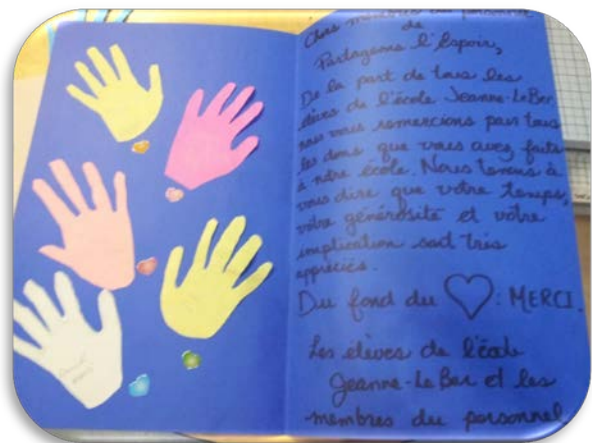 Chers membres du personnel
de
Partageons l'Espoir,
De la part de tous les
élèves de l'école Jeanne-LeBer,
nous vous remercions pour tous
les dons que vous avez faits
à notre école. Nous tenons à
vous dire que votre temps,
votre générosité et votre
implication sont très
appréciés.
Du fond du : MERCI.
Les élèves de l'école
Jeanne-Le Ber et les
membres du personnel